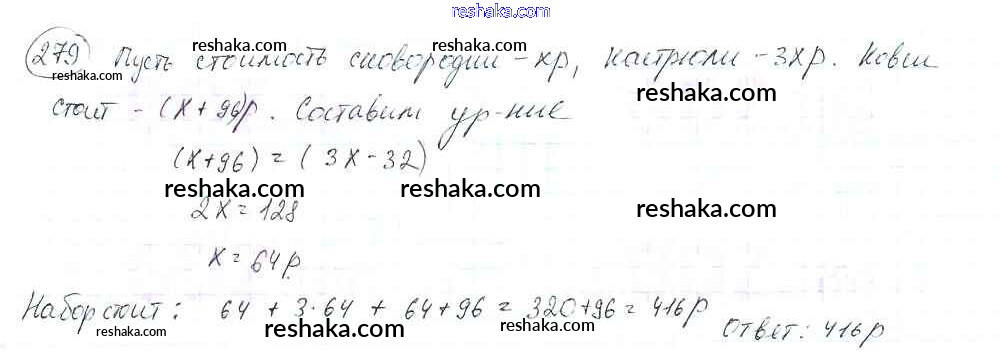 reshaka.com
279 Пусть стоимость сковородки - xр, кастрюли - 3xр. Ковш
стоит - (x+96)р. Составим ур-ние
(x+96) = (3x-32)
2x = 128
x = 64р.
Набор стоит: 64 + 3·64 + 64+96 = 320+96 = 416р
Ответ: 416р
reshaka.com
reshaka.com
reshaka.com
reshaka.com
reshaka.com
reshaka.com
reshaka.com
reshaka.com
reshaka.com
reshaka.com
reshaka.com